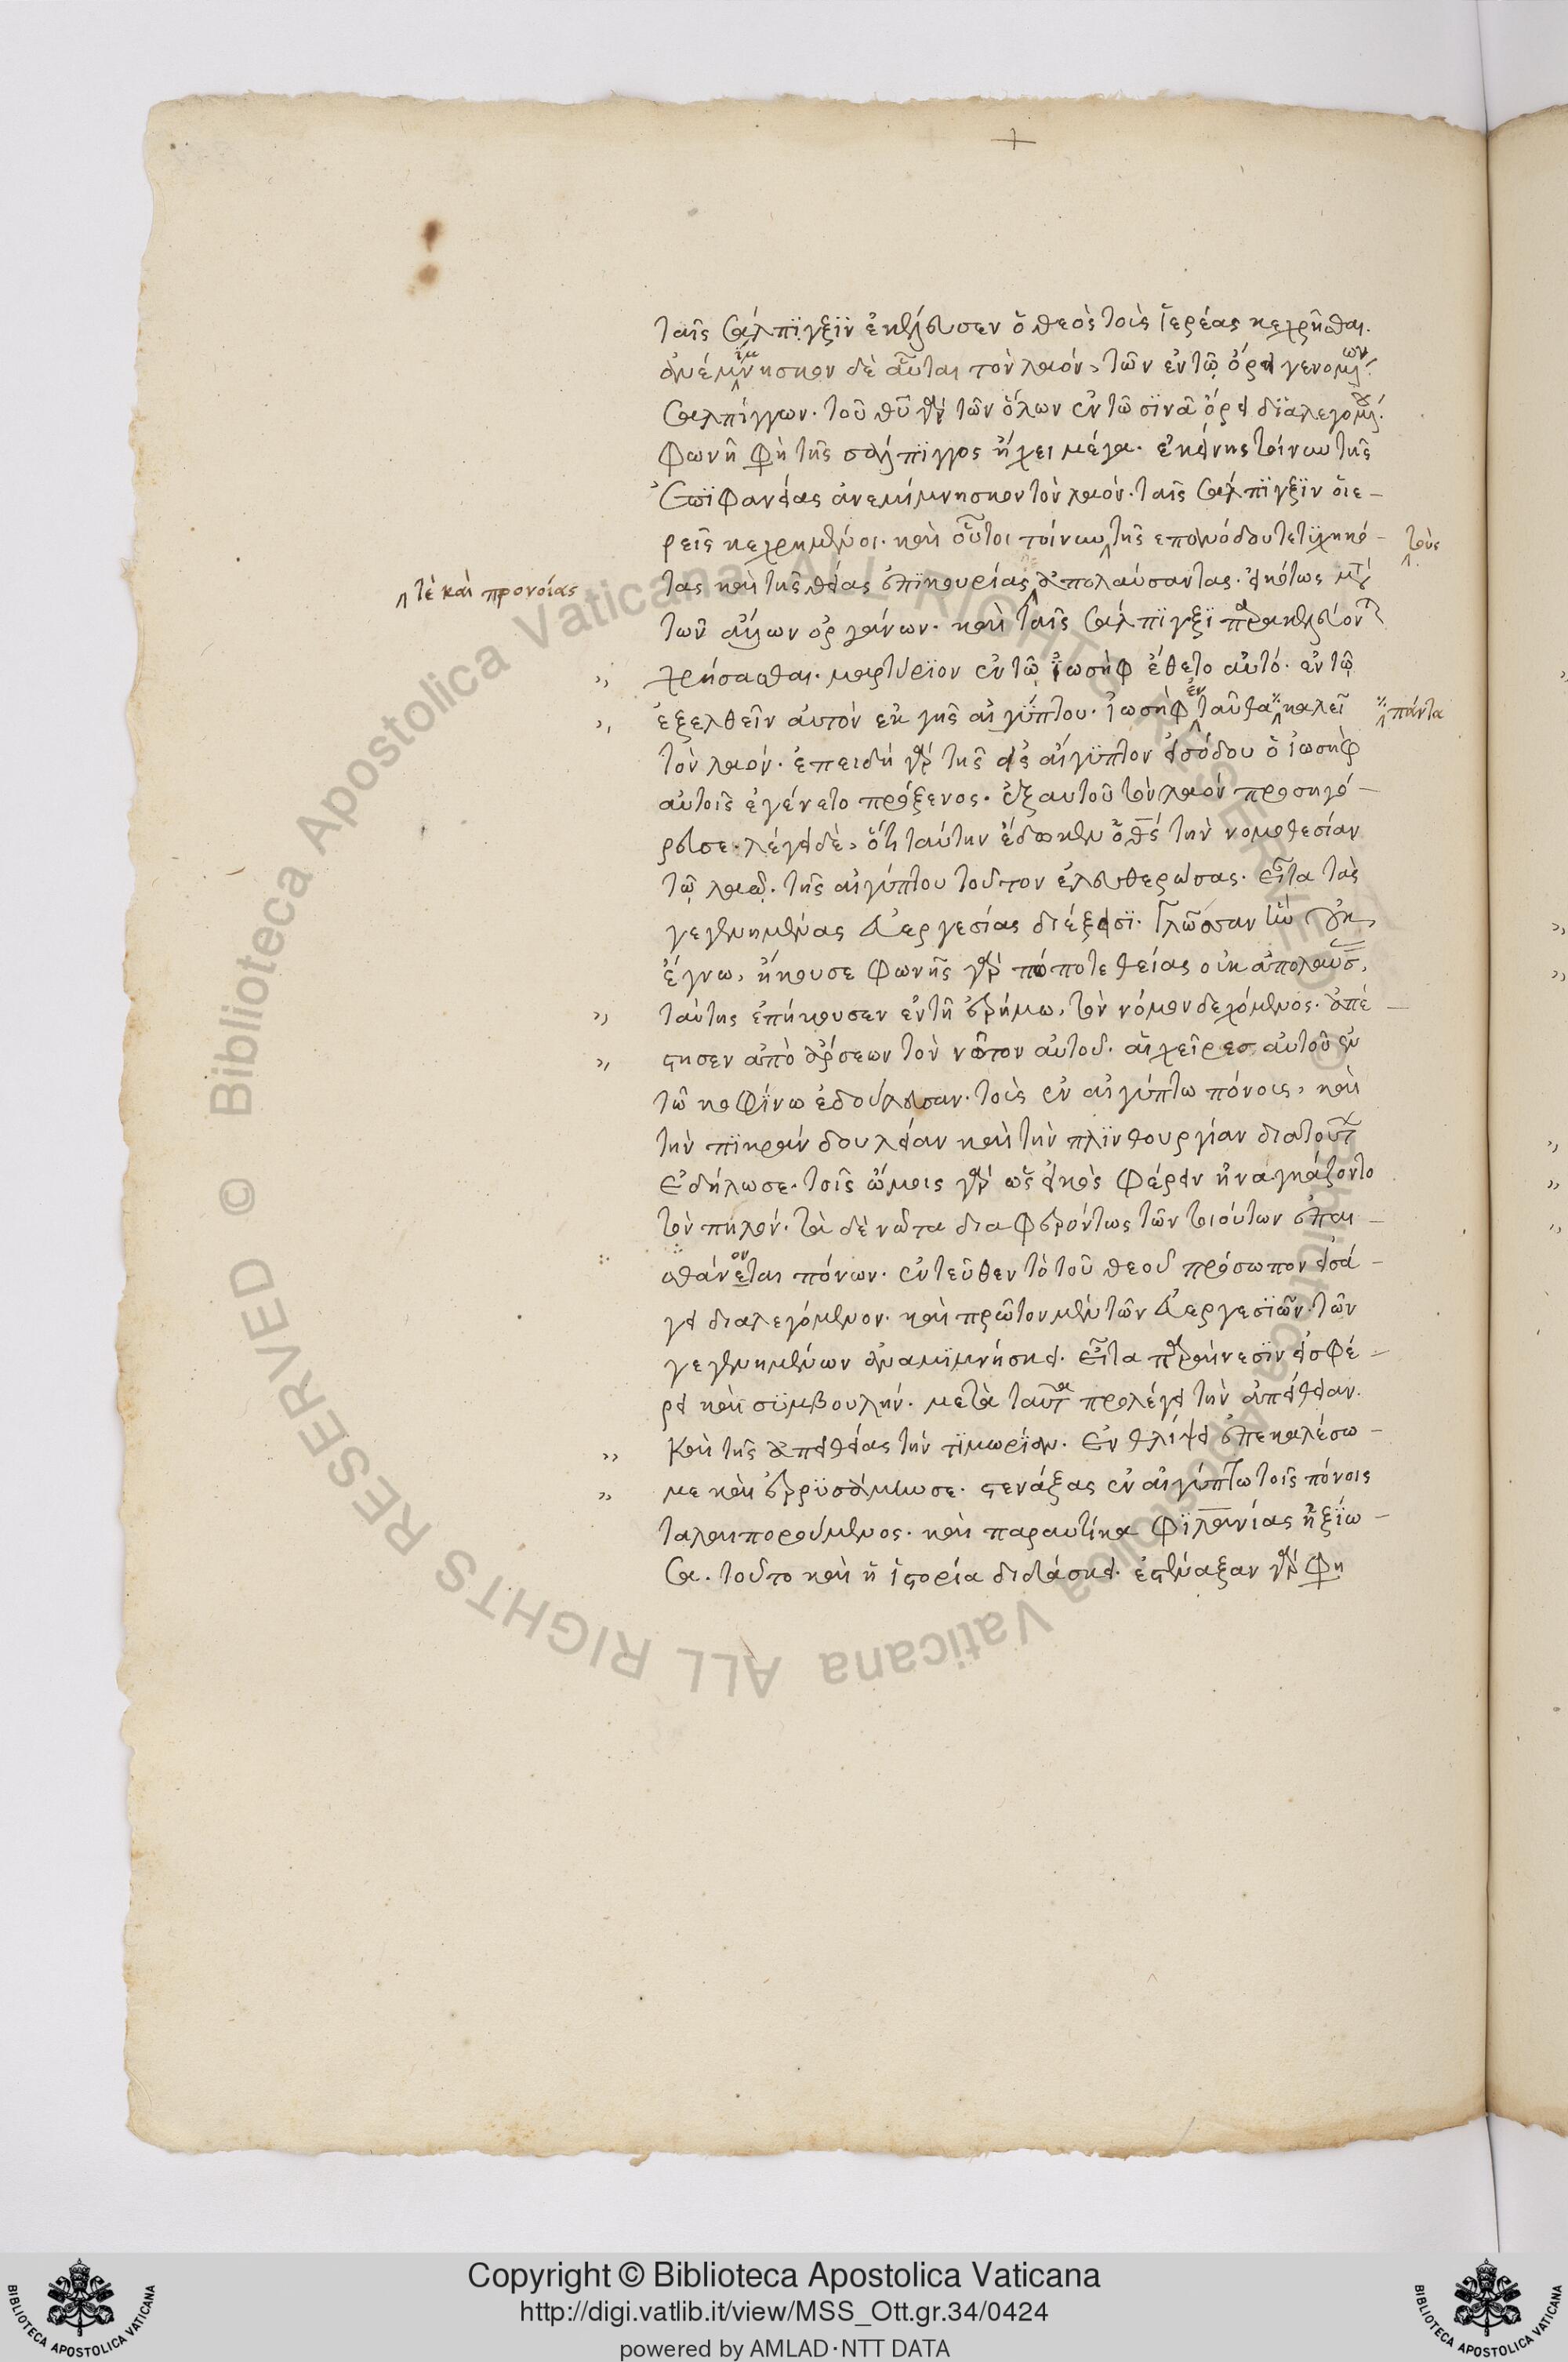 ταῖς σάλπϊγξϊν ἐκέλευσεν ὁ θεὸς τοὺς ἱερέας κεχρῆσθαι.
ἀνεμίμνησκον δὲ αὗται τὸν λαόν, τῶν ἐν τῶ ὄρει γενομένων
σαλπίγγων. τοῦ θῦ γὰρ τῶν ὅλων ἐν τῶ σϊνᾶ ὄρει διαλεγομένου.
φωνὴ φη τῆς σάλπϊγγος ἤχει μέγα. ἐκείνης τοίνυν τῆς
ἐπϊφανείας ἀνεμίμνησκον τὸν λαόν. ταῖς σάλπϊγξϊν οἱ ἱε-
ρεῖς κεχρημένοι. καὶ οὗτοι τοίνυν τῆς επανόδου τετϊχηκό- τοὺς
τὲ καὶ προνοίας
τας καὶ τῆς θείας ἐπϊκουρίας ἀπολαύσαντας. εἰκότως μετὰ
τῶν ἄλλων ὀργάνων. καὶ ταῖς σάλπϊγξϊ παρακελεύονται
χρήσασθαι. μαρτύρϊον ἐν τῶ ἰωσὴφ ἔθετο αὐτό. ἐν τῶ
ἐξελθεῖν αὐτὸν ἐκ γῆς αἰγύπτου. ἰωσὴφ ἐνταῦθα καλεῖ πάντα
τὸν λαόν. ἐπειδὴ γὰρ τῆς εἰς αἴγϋπτον εἰσόδου ὁ ἰωσὴφ
αὐτοῖς ἐγένετο πρόξενος. ἐξ αυτοῦ τὸν λαὸν προσηγό-
ρευσε. λέγει δὲ, ὅτι ταύτην ἔδωκεν ὁ θς τὴν νομοθεσίαν
τῶ λαῶ. τῆς αἰγύπτου τοῦτον ἐλευθερώσας. εἶτα τὰς
γεγενημένας εὐεργεσίας διέξεισϊ. γλῶσσαν ἣν οὐκ
ἔγνω, ἤκουσε φωνῆς γὰρ πώποτε θείας οὐκ ἀπολαύσ,
ταύτης ἐπήκουσεν ἐν τῆ ἐρήμω, τὸν νόμον δεχόμενος. ἀπέ-
στησεν ἀπὸ ἄρσεων τὸν νῶτον αὐτοῦ. αἱ χεῖρες αὐτοῦ ἐν
τῶ κοφίνω ἐδούλευσαν. τοὺς ἐν αἰγύπτω πόνους, καὶ
τὴν πϊκρὰν δουλείαν καὶ τὴν πλϊνθουργίαν δια τούτ
ἐδήλωσε. τοῖς ὤμοις γὰρ ὡς εἰκὸς φέρειν ἠναγκάζοντο
τὸν πηλόν. τὰ δὲ νῶτα διαφερόντως τῶν τοιούτων ἐπαι-
σθάνονται πόνων. ἐντεῦθεν τὸ τοῦ θεοῦ πρόσωπον εἰσά-
γει διαλεγόμενον. καὶ πρῶτον μὲν τῶν εὐεργεσϊῶν. τῶν
γεγενημένων ἀναμϊμνήσκει. εἶτα παραίνεσϊν εἰσφέ-
ρει καὶ σϋμβουλήν. μετὰ ταῦτα προλέγει τὴν ἀπείθειαν.
καὶ τῆς ἀπειθείας τὴν τϊμωρίαν. ἐν θλίψει ἐπεκαλέσω
με καὶ ἐρρϋσάμην σε. στενάξας ἐν αἰγύπτω τοῖς πόνοις
ταλαιπορούμενος. καὶ παραυτίκα φϊλανίας ἠξϊώ-
σα. τοῦτο καὶ ἡ ἱστορία διδάσκει. ἐστέναξαν γὰρ φη
Copyright © Biblioteca Apostolica Vaticana
http://digi.vatlib.it/view/MSS_Ott.gr.34/0424
powered by AMLAD·NTT DATA